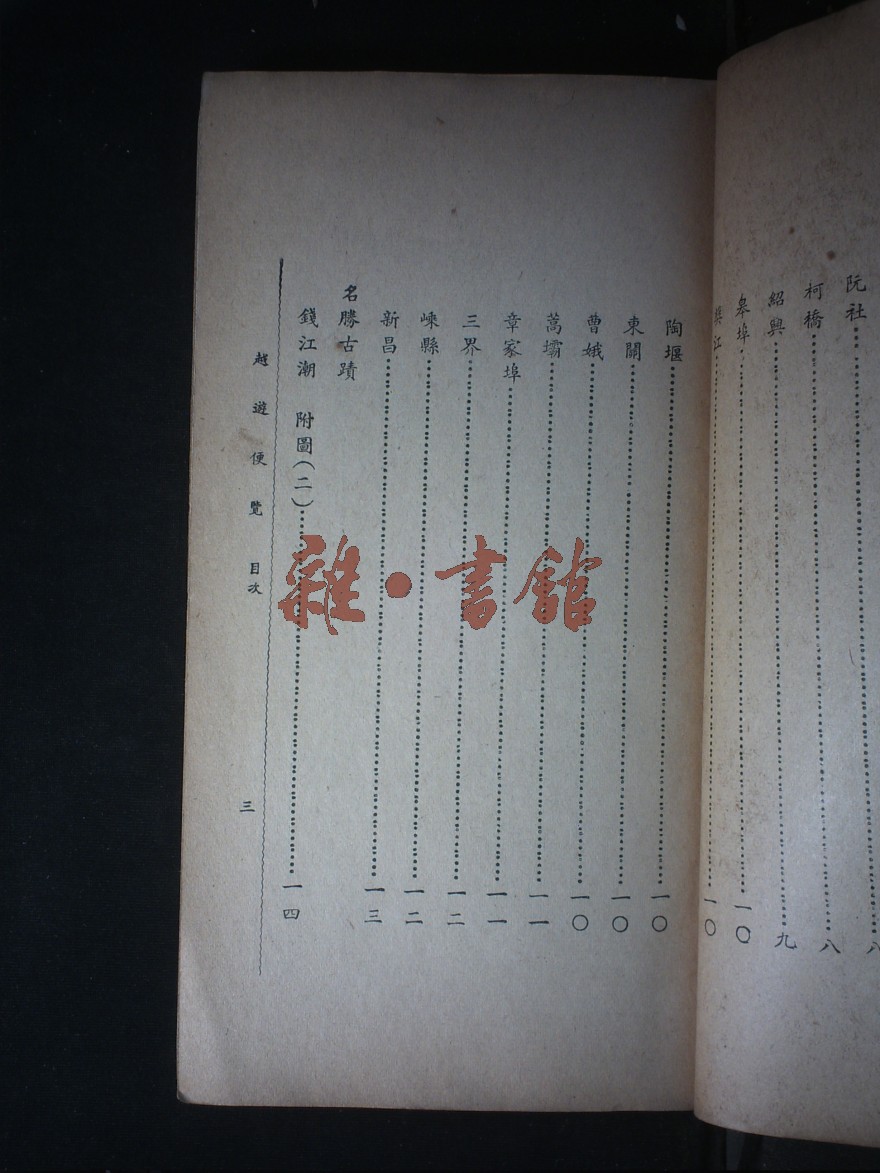 阮社……八
柯橋……八
紹興……九
皋埠……一〇
樊江……一〇
陶堰……一〇
東關……一〇
曹娥……一〇
蒿壩……一一
章家埠……一一
三界……一二
嵊縣……一二
新昌……一三
名勝古蹟
錢江潮 附圖(二)……一四
越遊便覽 目次
三
雜·書館